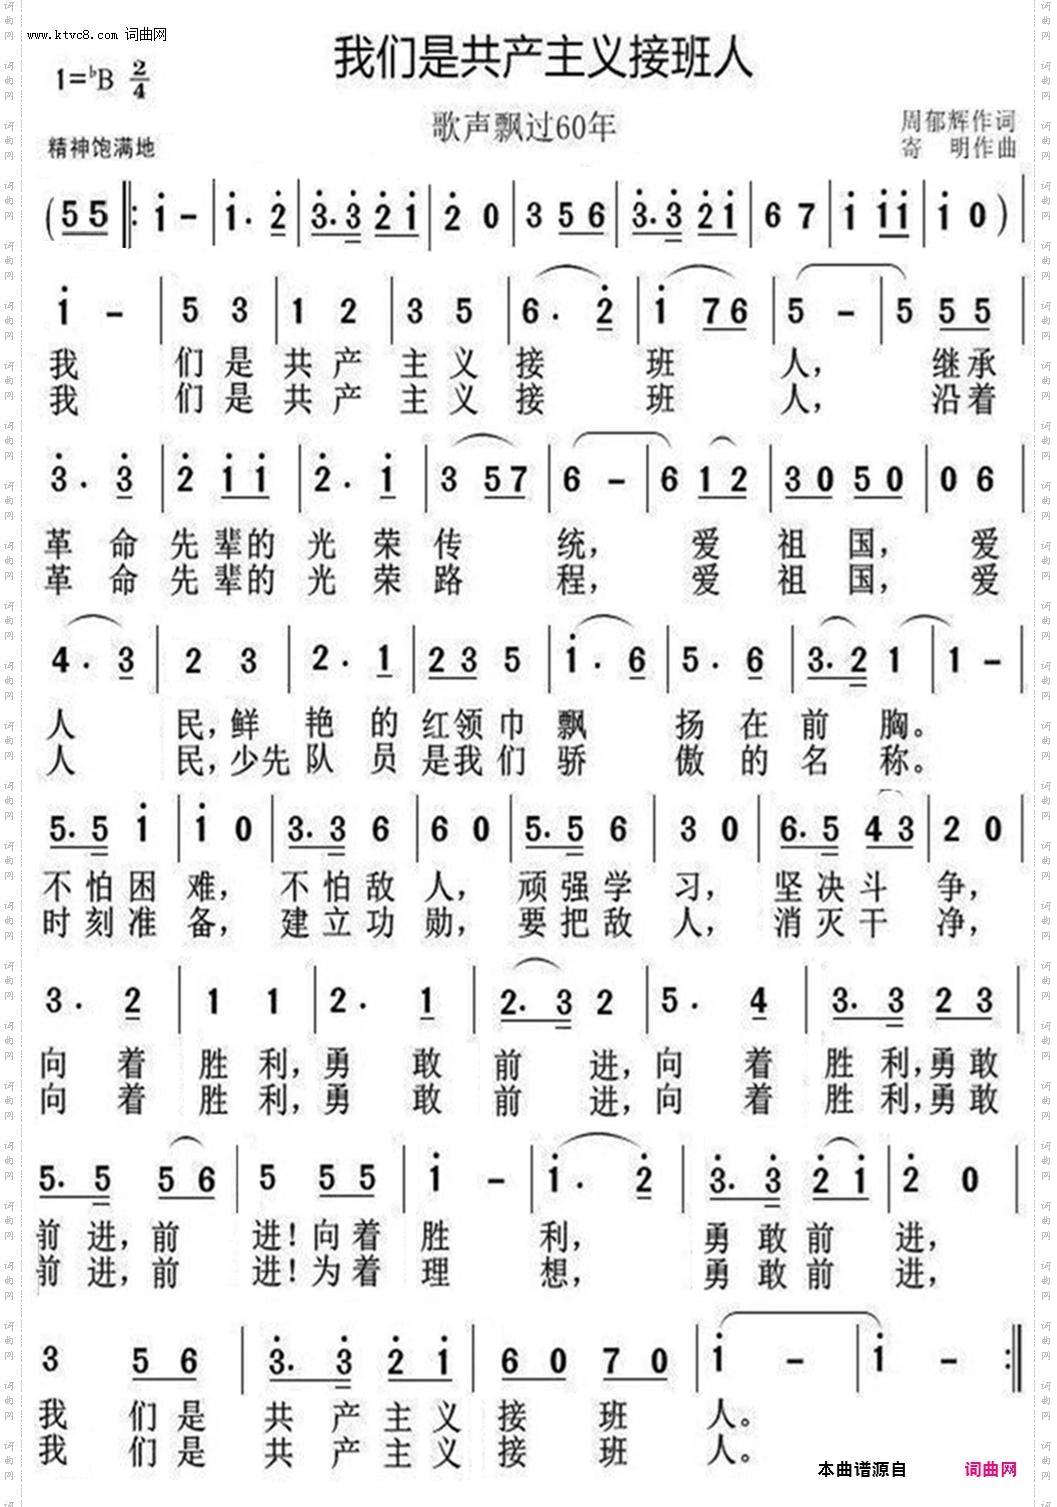 www.ktvc8.com 词曲网
我们是共产主义接班人
1=♭B 2/4
歌声飘过60年
周郁辉作词
精神饱满地
寄 明作曲
(55 ‖: i - | i. 2 | 3.3 2i | 2 0 | 3 56 | 3.3 2i | 6 7 | i ii | i 0 ) |
i - | 5 3 | 1 2 | 3 5 | 6. 2 | i 76 | 5 - | 5 55 |
我 们是 共产 主义 接 班 人, 继承
我 们是 共产 主义 接 班 人, 沿着
3. 3 | 2 ii | 2. i | 3 57 | 6 - | 6 12 | 30 50 | 0 6 |
革 命 先 辈的 光 荣 传 统, 爱 祖 国, 爱
革 命 先 辈的 光 荣 路 程, 爱 祖 国, 爱
4. 3 | 2 3 | 2. 1 | 23 5 | i. 6 | 5. 6 | 3.2 1 | 1 - |
人 民,鲜 艳 的 红领 巾 飘 扬 在 前 胸。
人 民,少先 队 员 是我 们 骄 傲 的 名 称。
5.5 i | i 0 | 3.3 6 | 6 0 | 5.5 6 | 3 0 | 6.5 43 | 2 0 |
不怕困 难, 不怕敌 人, 顽强学 习, 坚决斗 争,
时刻准 备, 建立功 勋, 要把敌 人, 消灭干 净,
3. 2 | 1 1 | 2. 1 | 2.3 2 | 5. 4 | 3.3 23 |
向 着 胜 利,勇 敢 前 进,向 着 胜 利,勇敢
向 着 胜 利,勇 敢 前 进,向 着 胜 利,勇敢
5.5 56 | 5 55 | i - | i. 2 | 3.3 2i | 2 0 |
前 进,前 进!向着 胜 利, 勇 敢前 进,
前 进,前 进!为着 理 想, 勇 敢前 进,
3 56 | 3.3 2i | 60 70 | i - | i - :‖
我 们是 共 产 主义 接 班 人。
我 们是 共 产 主义 接 班 人。
本曲谱源自 词曲网